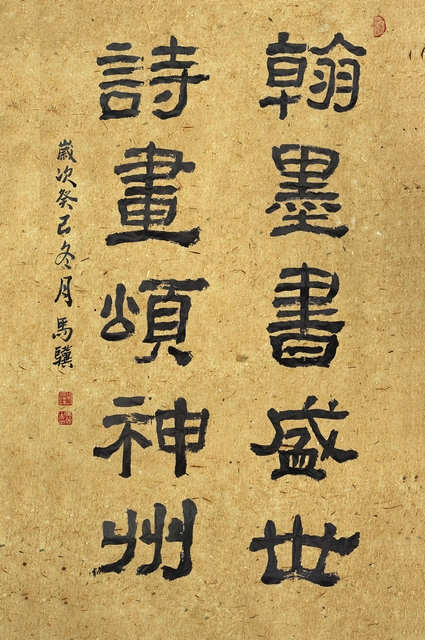 翰墨書盛世
詩畫頌神州
歲次癸巳冬月馬驥